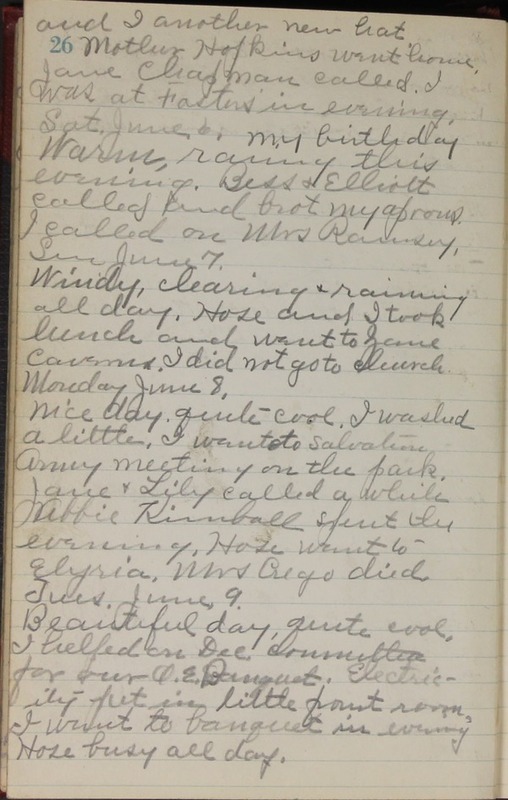 and I another new hat
26 Mother Hopkins went home.
Jane Chapman called. I
was at Fosters in evening.
Sat. June 6. my birthday
Warm, raing this
evening. Bess & Elliott
called and brot my aprons.
I called on Mrs Ramsey.
Sun June 7.
Windy, clearing & raining
all day. Hose and I took
lunch and went to Zane
Caverns. I did not go to church
Monday June 8.
Nice day. quite cool. I washed
a little. I went to Salvation
Army meeting on the park.
Jane & Lily called a while
Kimball spent the
evening. Hose went to
Elyria. Mrs Crego died
Tues. June 9.
Beautiful day, quite cool.
I helped on Dec. Committee
for our O.E. Banquet. Electric-
ity put in little front room.
I went to banquet in evening
Hose busy all day.